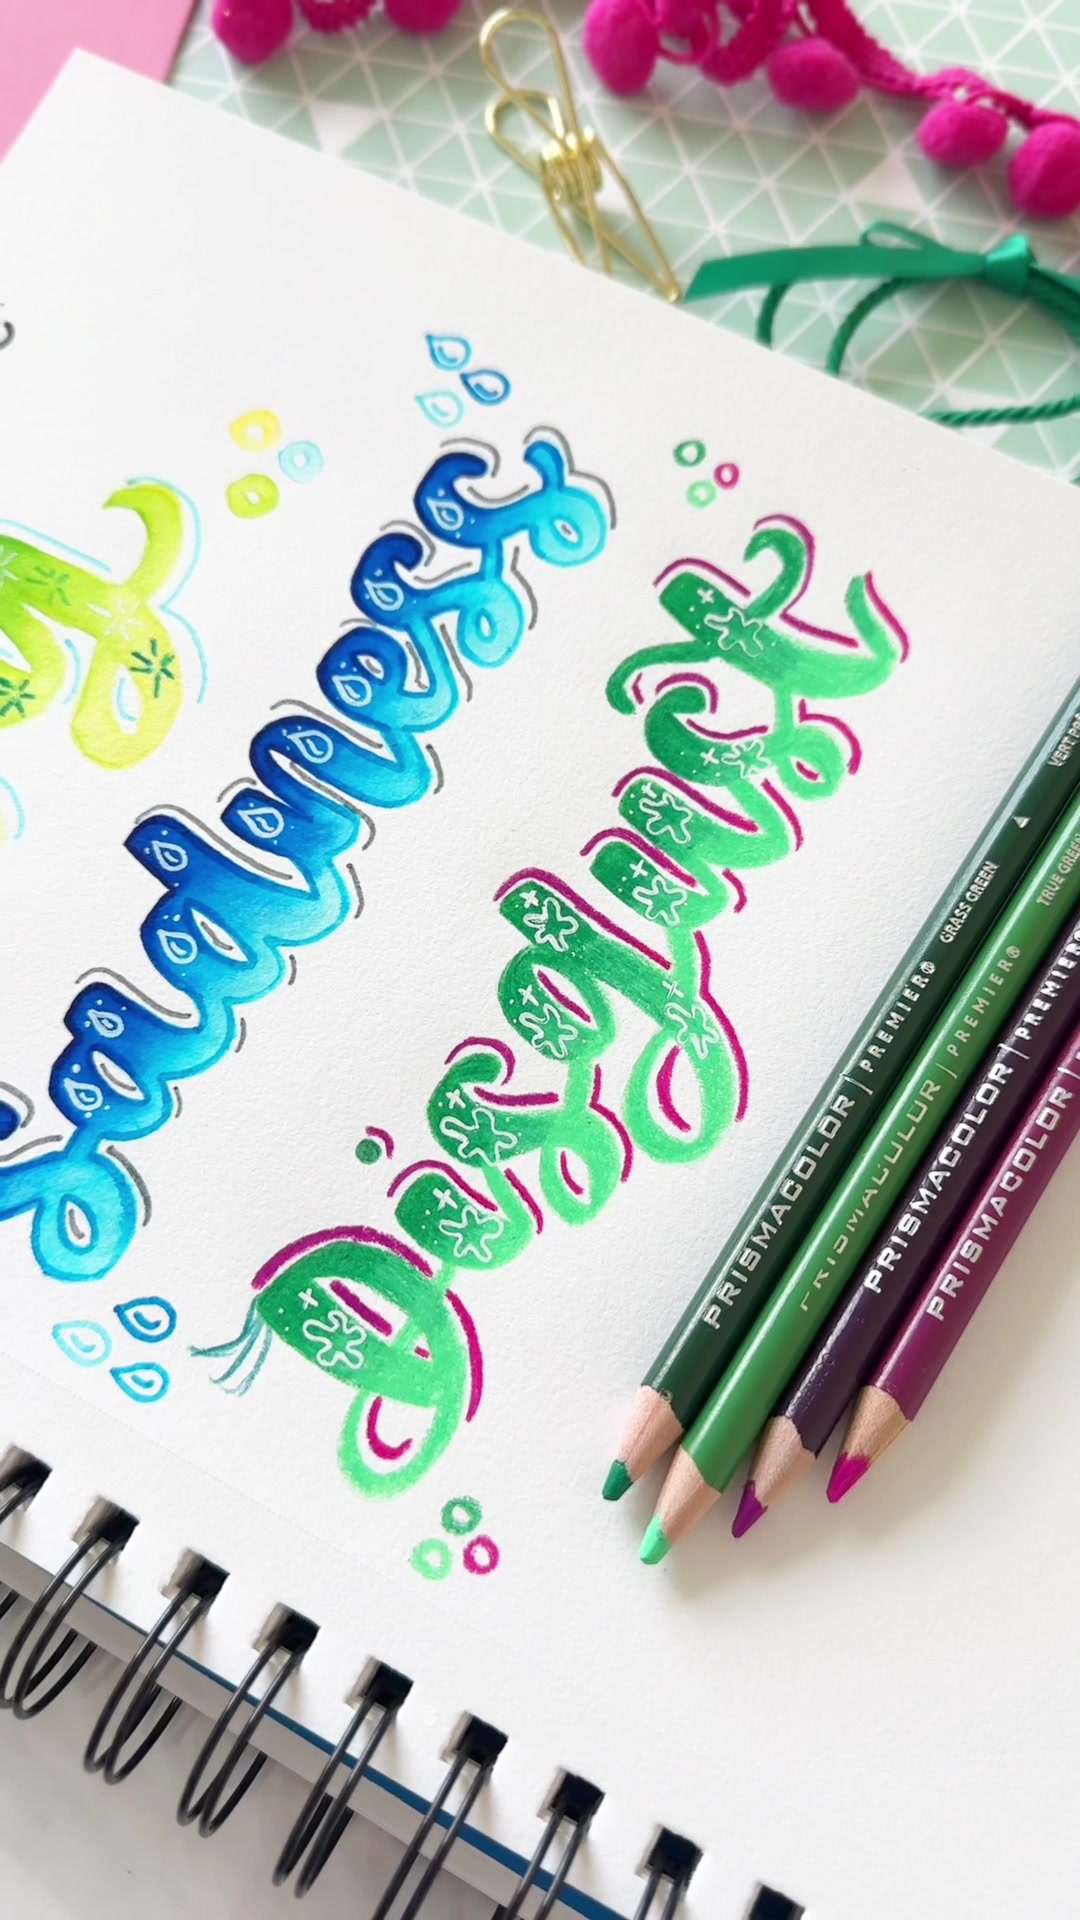 Sadness
Disgust
PRISMACOLOR | PREMIER® GRASS GREEN
PRISMACOLOR | PREMIER® TRUE GREEN
PRISMACOLOR | PREMIER
PRISMACOLOR |